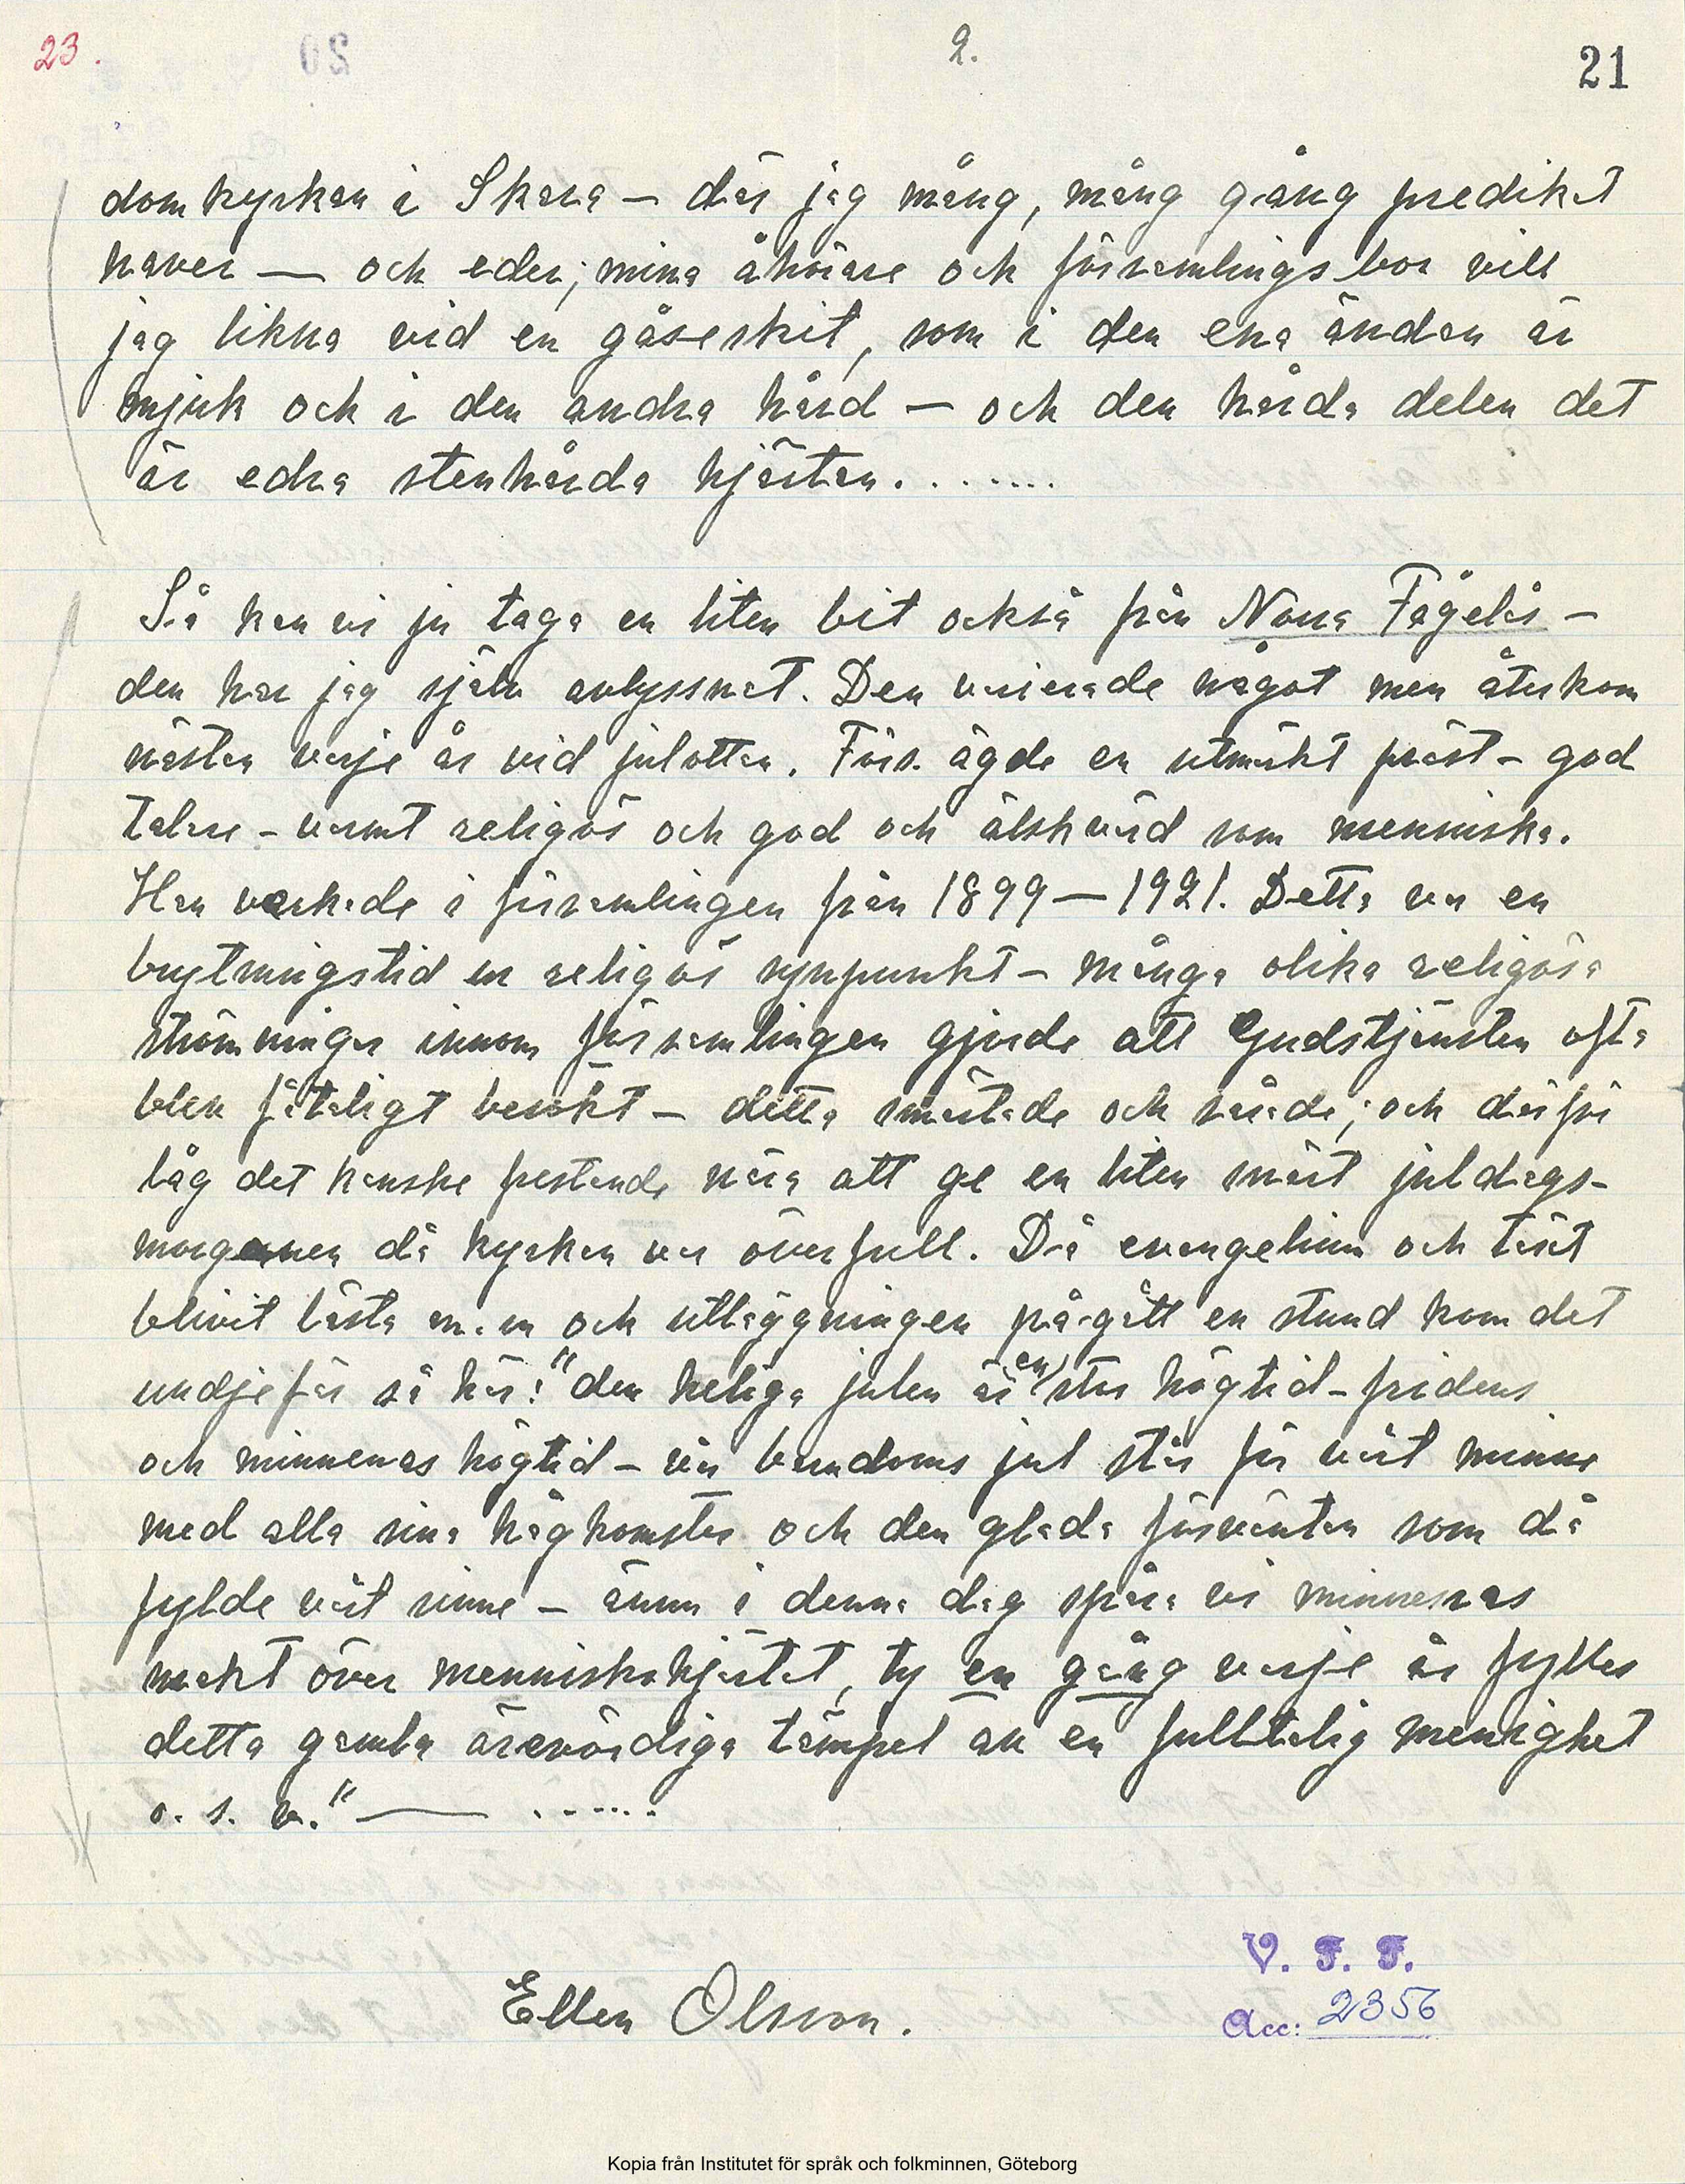 23.
2.
21
domkyrkan i Skara – där jag mång, mång gång predikat
haver — och eder, mina åhörare och församlingsbor vill
jag likna vid en gåseskit, som i den ena ändan är
mjuk och i den andra hård – och den hårda delen det
är edra stenhårda hjärtan........
Så kan vi ju taga en liten bit också från Norra Fågelås –
den har jag själv avlyssnat. Den varierade något men återkom
nästan varje år vid julottan. Förs. ägde en utmärkt präst – god
talare – varmt religiös och god och älskvärd som menniska.
Han verkade i församlingen från 1899 – 1921. Detta var en
brytningstid ur religiös synpunkt – många olika religiösa
strömningar innom församlingen gjorde att Gudstjänsten ofta
blev fåtaligt besökt – detta smärtade och sårade, och därför
låg det kanske frestande nära att ge en liten snärt juldags-
morgonen då kyrkan var överfull. Då evangelium och täxt
blivit lästa m.m och utläggningen på-gått en stund kom det
undjefär så här: "den heliga julen är en stor högtid – fridens
och minnenas högtid – vår barndoms jul står för vårt minne
med alla sina hågkomster och den glada förväntan som då
fylde vårt sinne – ännu i denna dag spåra vi minnenas
makt över menniskohjärtat, ty en gång varje år fylles
detta gamla ärevördiga tämpel av en fulltalig menighet
o. s. v." — ......
Ellen Olsson.
V. F. F.
Acc: 2356
Kopia från Institutet för språk och folkminnen, Göteborg